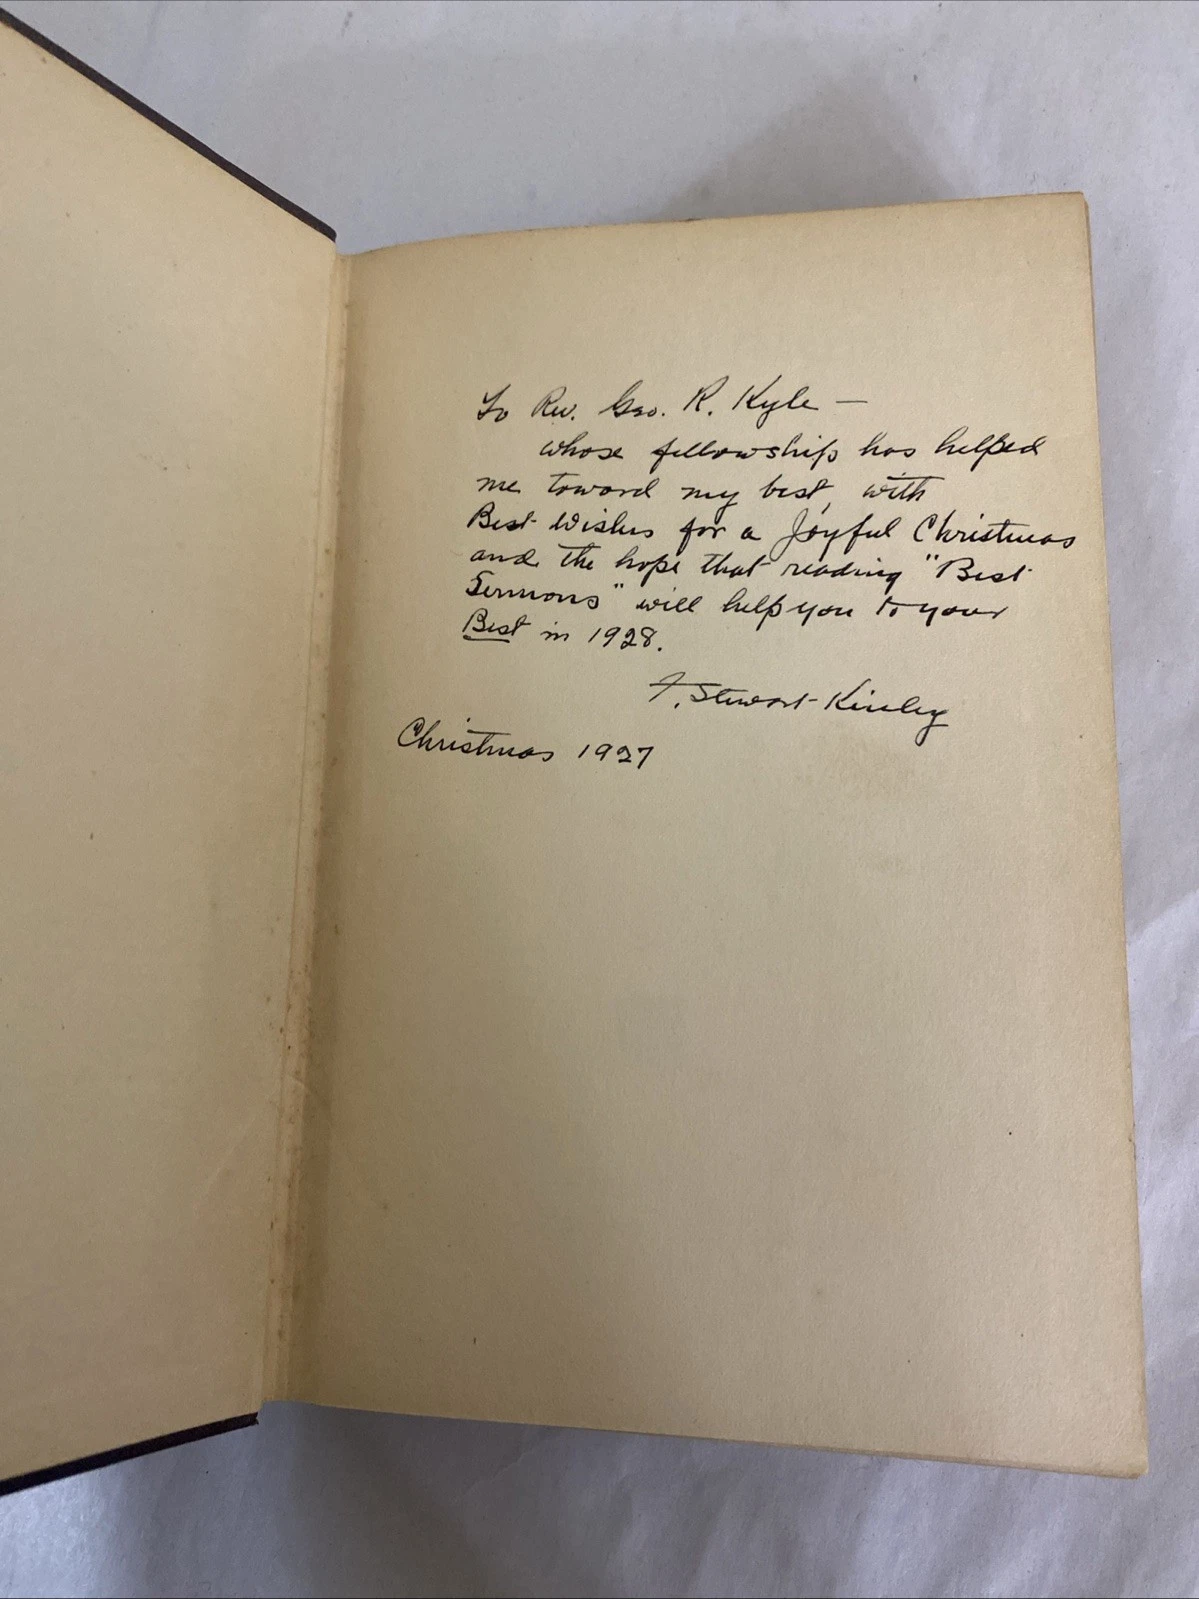 To Rev. Geo. R. Kyle —
whose fellowship has helped
me toward my best, with
Best Wishes for a Joyful Christmas
and the hope that reading "Best
Sermons" will help you to your
Best in 1928.
F. Stewart-Kinley
Christmas 1927